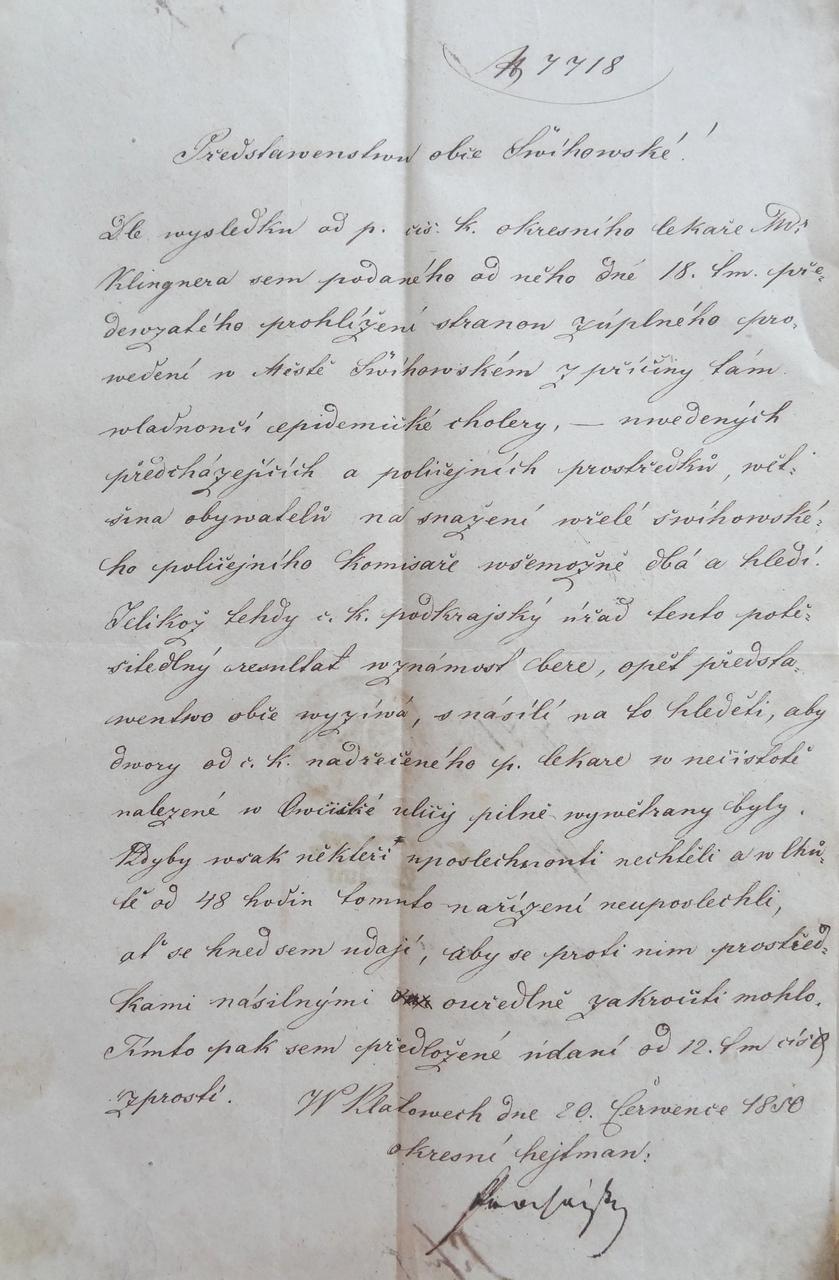 № 7718
Představenstwu obce Šwihowské!
Dle wysledku od p. cis. k. okresního lekaře Mdr
Klingnera sem podaného od něho dné 18. tm. pře-
dewzatého prohlížení stranou zúplného pro-
wedení w Městě Šwihowském z příčiny tám
wladnoučí epidemické cholery, — uwedených
předcházejících a policejních prostředků, wět-
šina obywatelů na snažení wřelé šwihowské-
ho policejního komisaře wšemožně dbá a hledí.
Jelikož tehdy c. k. podkrajský úřad tento potě-
sitedlný resultat w známost bere, opět předsta-
wentwo obce wyzíwá, s násílí na to hleděti, aby
dwory od c. k. nadřečeného p. lekare w nečistotě
nalezené w uličy pilně wywětrany byly.
Kdyby wsak někteří uposlechnouti nechtěli a w lhů-
tě od 48 hodin tomuto nařízení neuposlechli,
ať se hned sem udají, aby se proti nim prostřed-
kami násilnými ouředlně zakročiti mohlo.
Tímto pak sem předložené údaní od 12. tm čís 8
zprostí. W Klatowech dne 20. Čerwence 1850
okresní hejtman: